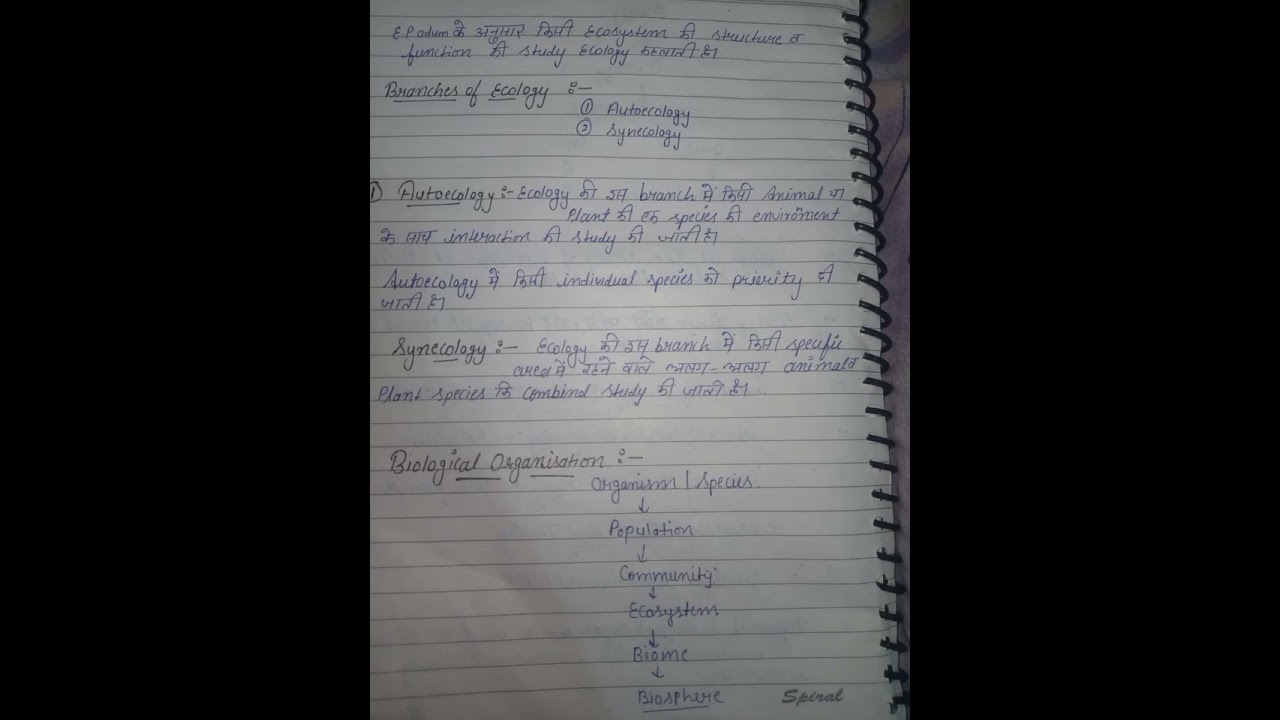 E.P odum के अनुसार किसी Ecosystem की structure व
function की study Ecology कहलाती है।
Branches of Ecology :-
① Autoecology
② Synecology
① Autoecology :- Ecology की इस branch में किसी Animal या
Plant की एक species की enviroment
के साथ interaction की study की जाती है।
Autoecology में किसी individual species को priority दी
जाती है।
Synecology :- Ecology की इस branch में किसी specific
area में रहने वाले अलग-अलग animal व
Plant species कि combind study की जाती है।
Biological Organisation :-
Organism / Species
↓
Population
↓
Community
↓
Ecosystem
↓
Biome
↓
Biosphere
Spiral